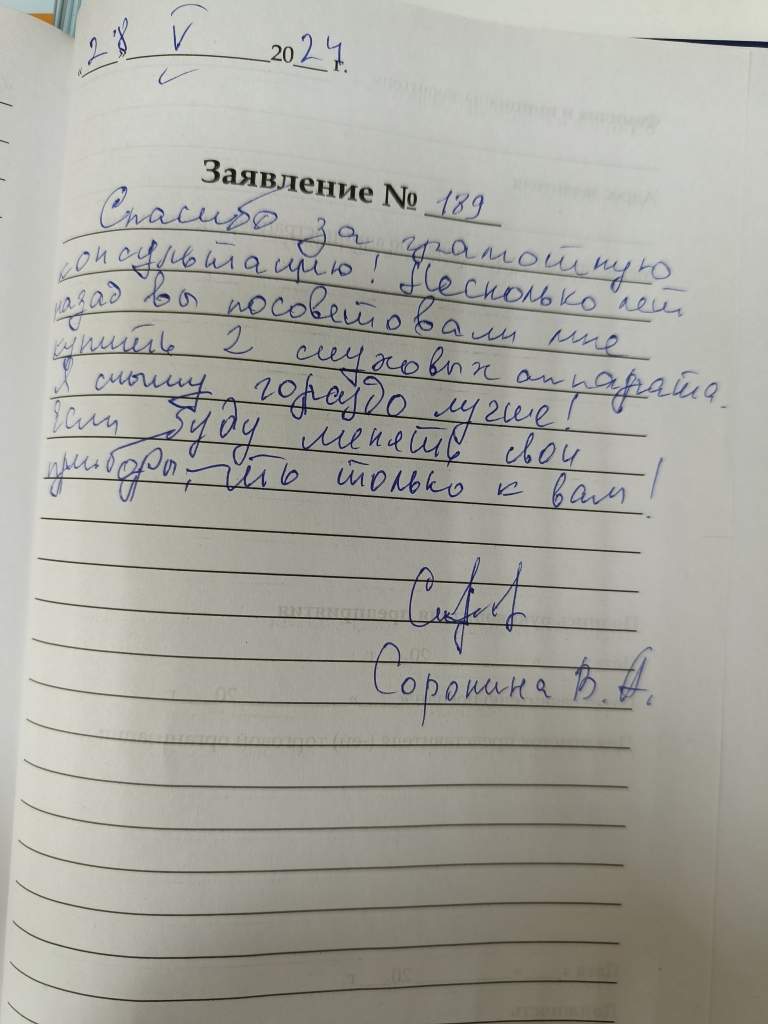 «28» V 2024 г.
Заявление № 189
Спасибо за грамотную
консультацию! Несколько лет
назад вы посоветовали мне
купить 2 слуховых аппарата.
Я слышу гораздо лучше!
Если буду менять свои
приборы, – то только к вам!
Сорокина В. А.